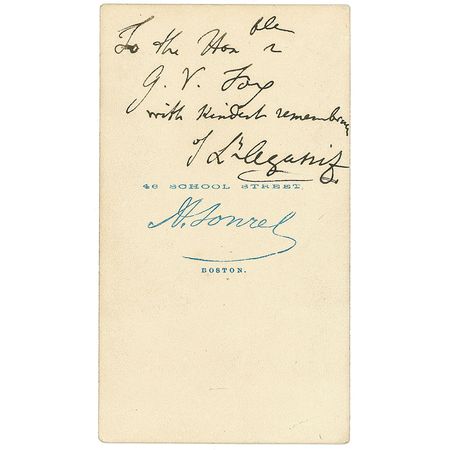 To the Honble
G. V. Fox
with kindest remembrance
of Ls Agassiz
46 SCHOOL STREET,
A. Sonrel
BOSTON.